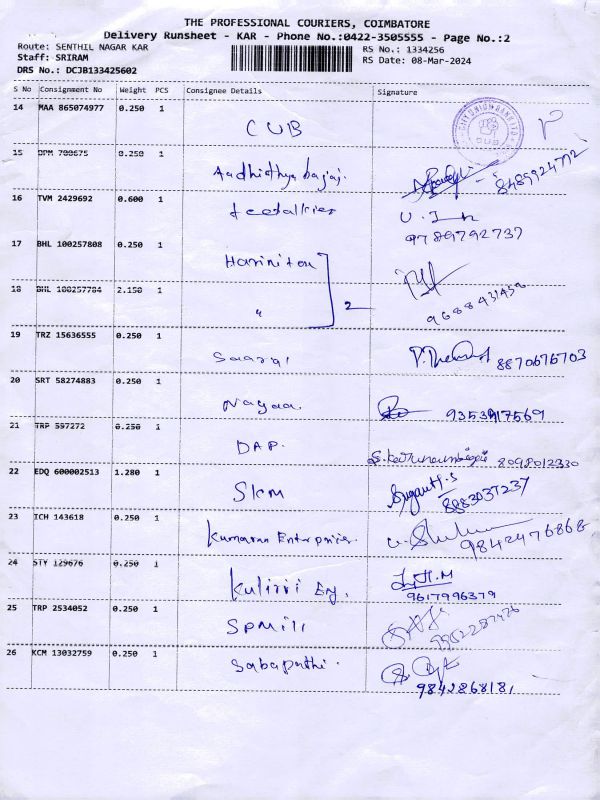 THE PROFESSIONAL COURIERS, COIMBATORE
Delivery Runsheet - KAR - Phone No.:0422-3505555 - Page No.:2
Route: SENTHIL NAGAR KAR
RS No.: 1334256
Staff: SRIRAM
RS Date: 08-Mar-2024
DRS No.: DCJB133425602
S No Consignment No Weight PCS Consignee Details Signature
14 MAA 865074977 0.250 1
CUB
CITY UNION BANK LTD
CUB
15 OPM 700675 0.250 1
Aadhithya bajaj.
8489924772
16 TVM 2429692 0.600 1
U. J
9789792737
17 BHL 100257808 0.250 1
Hariniton
18 BHL 100257784 2.150 1
" 2
9688431458
19 TRZ 15636555 0.250 1
Saaral
8870676703
20 SRT 58274883 0.250 1
Nagaa.
9353917569
21 TRP 597272 0.250 1
DAP.
8098012330
22 EDQ 600002513 1.280 1
SKM
8883037237
23 ICH 143618 0.250 1
Kumaran Enterprises.
9842476868
24 STY 129676 0.250 1
Eng.
9617996379
25 TRP 2534052 0.250 1
SPMill
26 KCM 13032759 0.250 1
Sabapathi.
9842868181